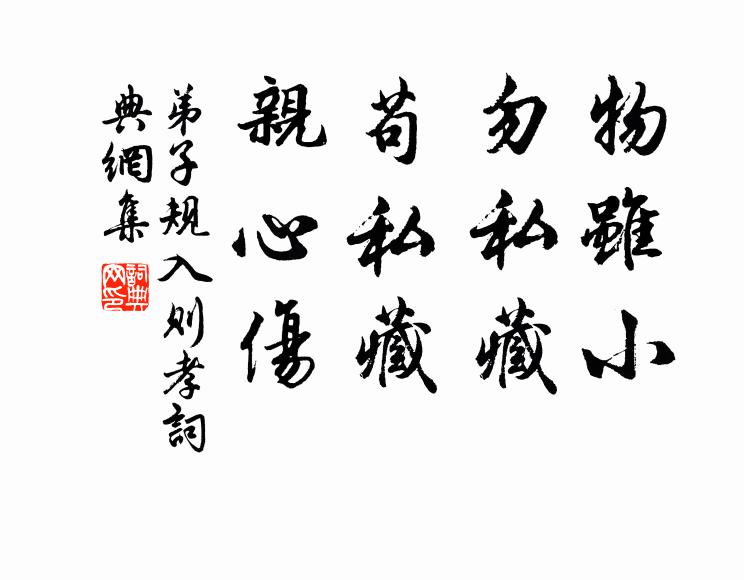 物雖小
勿私藏
苟私藏
親心傷
弟子規入則孝詞
典網集
詞典
网印